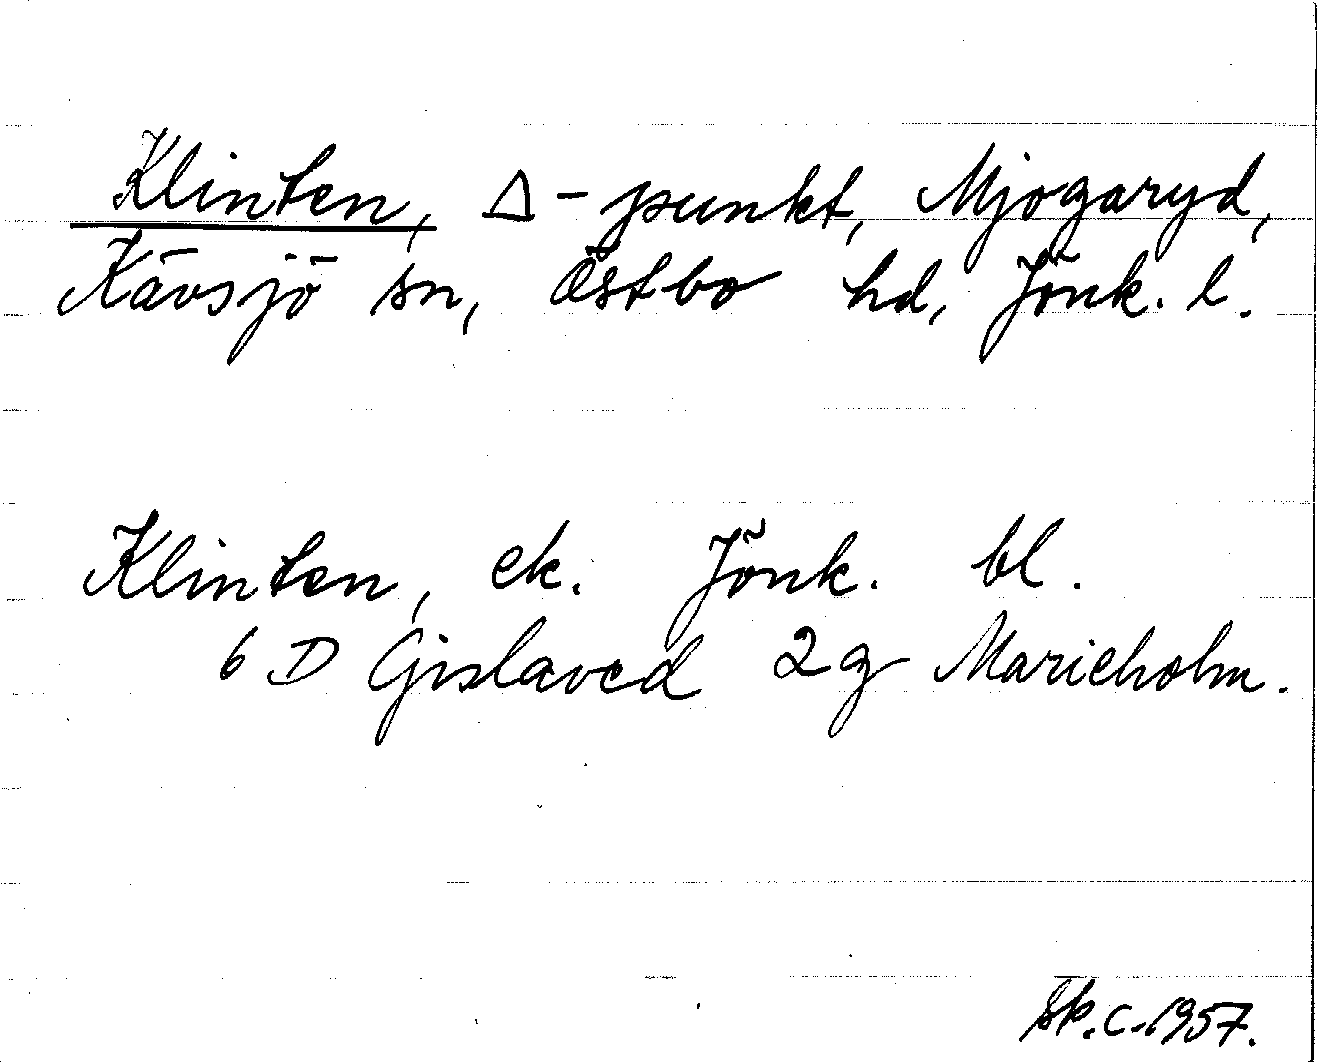 Klinten, Δ-punkt, Mjogaryd,
Kävsjö sn, Östbo hd, Jönk. l.
Klinten, ek. Jönk. bl.
6 D Gislaved 2g Marieholm.
Sk. c. 1957.